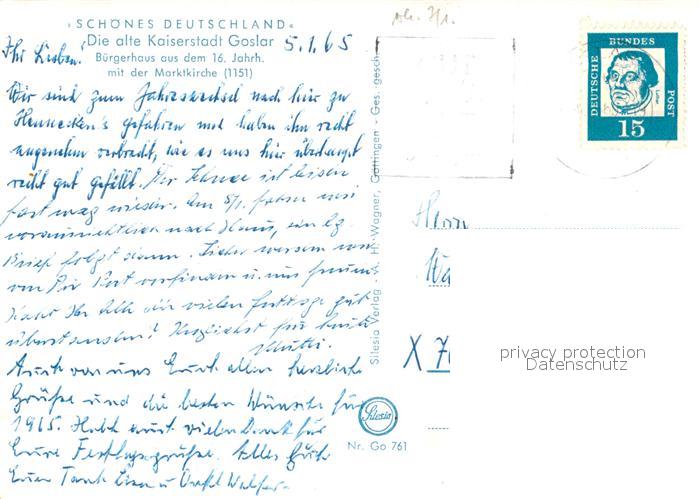 ›SCHÖNES DEUTSCHLAND‹
Die alte Kaiserstadt Goslar
Bürgerhaus aus dem 16. Jahrh.
mit der Marktkirche (1151)
5.1.65
Ihr Lieben!
Wir sind zum Jahreswechsel nach hier zu
Hennecken's gefahren und haben ihn recht
angenehm verbracht, wie es uns hier überhaupt
recht gut gefällt. Der Schnee ist leider
fast weg wieder. Am 8/1. fahren wir
voraussichtlich nach Haus, ein
Brief folgt dann. Sicher werden wir
von Dir Post vorfinden u. uns freuen
Ihr alle die vielen Festtage gut
überstanden! Herzlichst für heute
Auch von uns Euch allen herzliche
Grüße und die besten Wünsche für
1965. Habt auch vielen Dank für
Eure Festtagsgrüße. Alles Gute
Eure Tante u. Onkel
Silesia Verlag · A. H. Wagner, Göttingen · Ges. gesch.
Silesia
Nr. Go 761
DEUTSCHE BUNDES POST
Luther
15
Herrn
X 7
privacy protection
Datenschutz